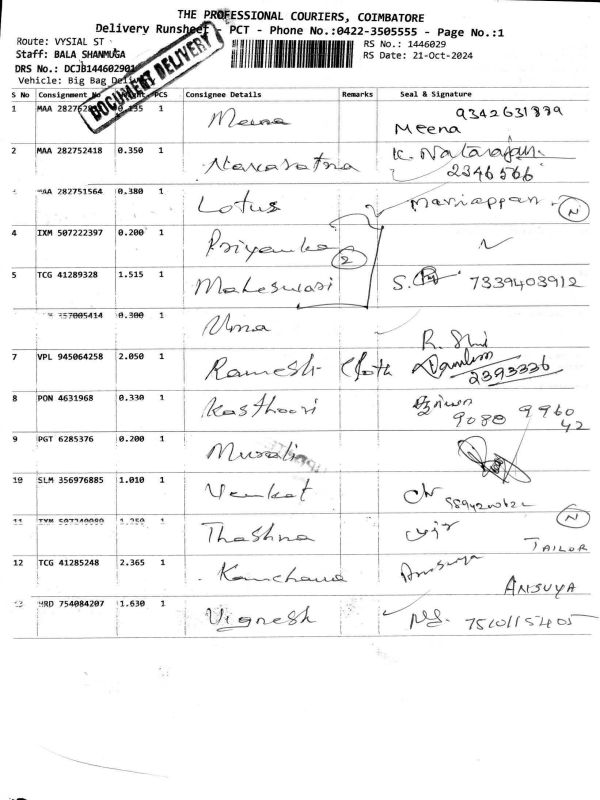 THE PROFESSIONAL COURIERS, COIMBATORE
Delivery Runsheet PCT - Phone No.:0422-3505555 - Page No.:1
Route: VYSIAL ST
RS No.: 1446029
Staff: BALA SHANMUGA
RS Date: 21-Oct-2024
DRS No.: DCJB14460290
Vehicle: Big Bag
DOCUMENT DELIVERY
S No Consignment No PCS Consignee Details Remarks Seal & Signature
1 MAA 1 Meena 9342631899
Meena
2 MAA 282752418 0.350 1 Navaratna K. Natarajan
2346566
MAA 282751564 0.380 1 Lotus Mariappan N
4 IXM 507222397 0.200 1 Priyanka 2
5 TCG 41289328 1.515 1 Maheswari S. 7339403912
357005414 0.300 1 Uma
7 VPL 945064258 2.050 1 Ramesh Cloth R.
2393336
8 PON 4631968 0.330 1 Kasthoori
9080 9960
42
9 PGT 6285376 0.200 1 Murali
10 SLM 356976885 1.010 1 Venkat
11 1 Thashna N
TAILOR
12 TCG 41285248 2.365 1 Kanchana Ansuya
ANSUYA
13 HRD 754084207 1.630 1 Vignesh